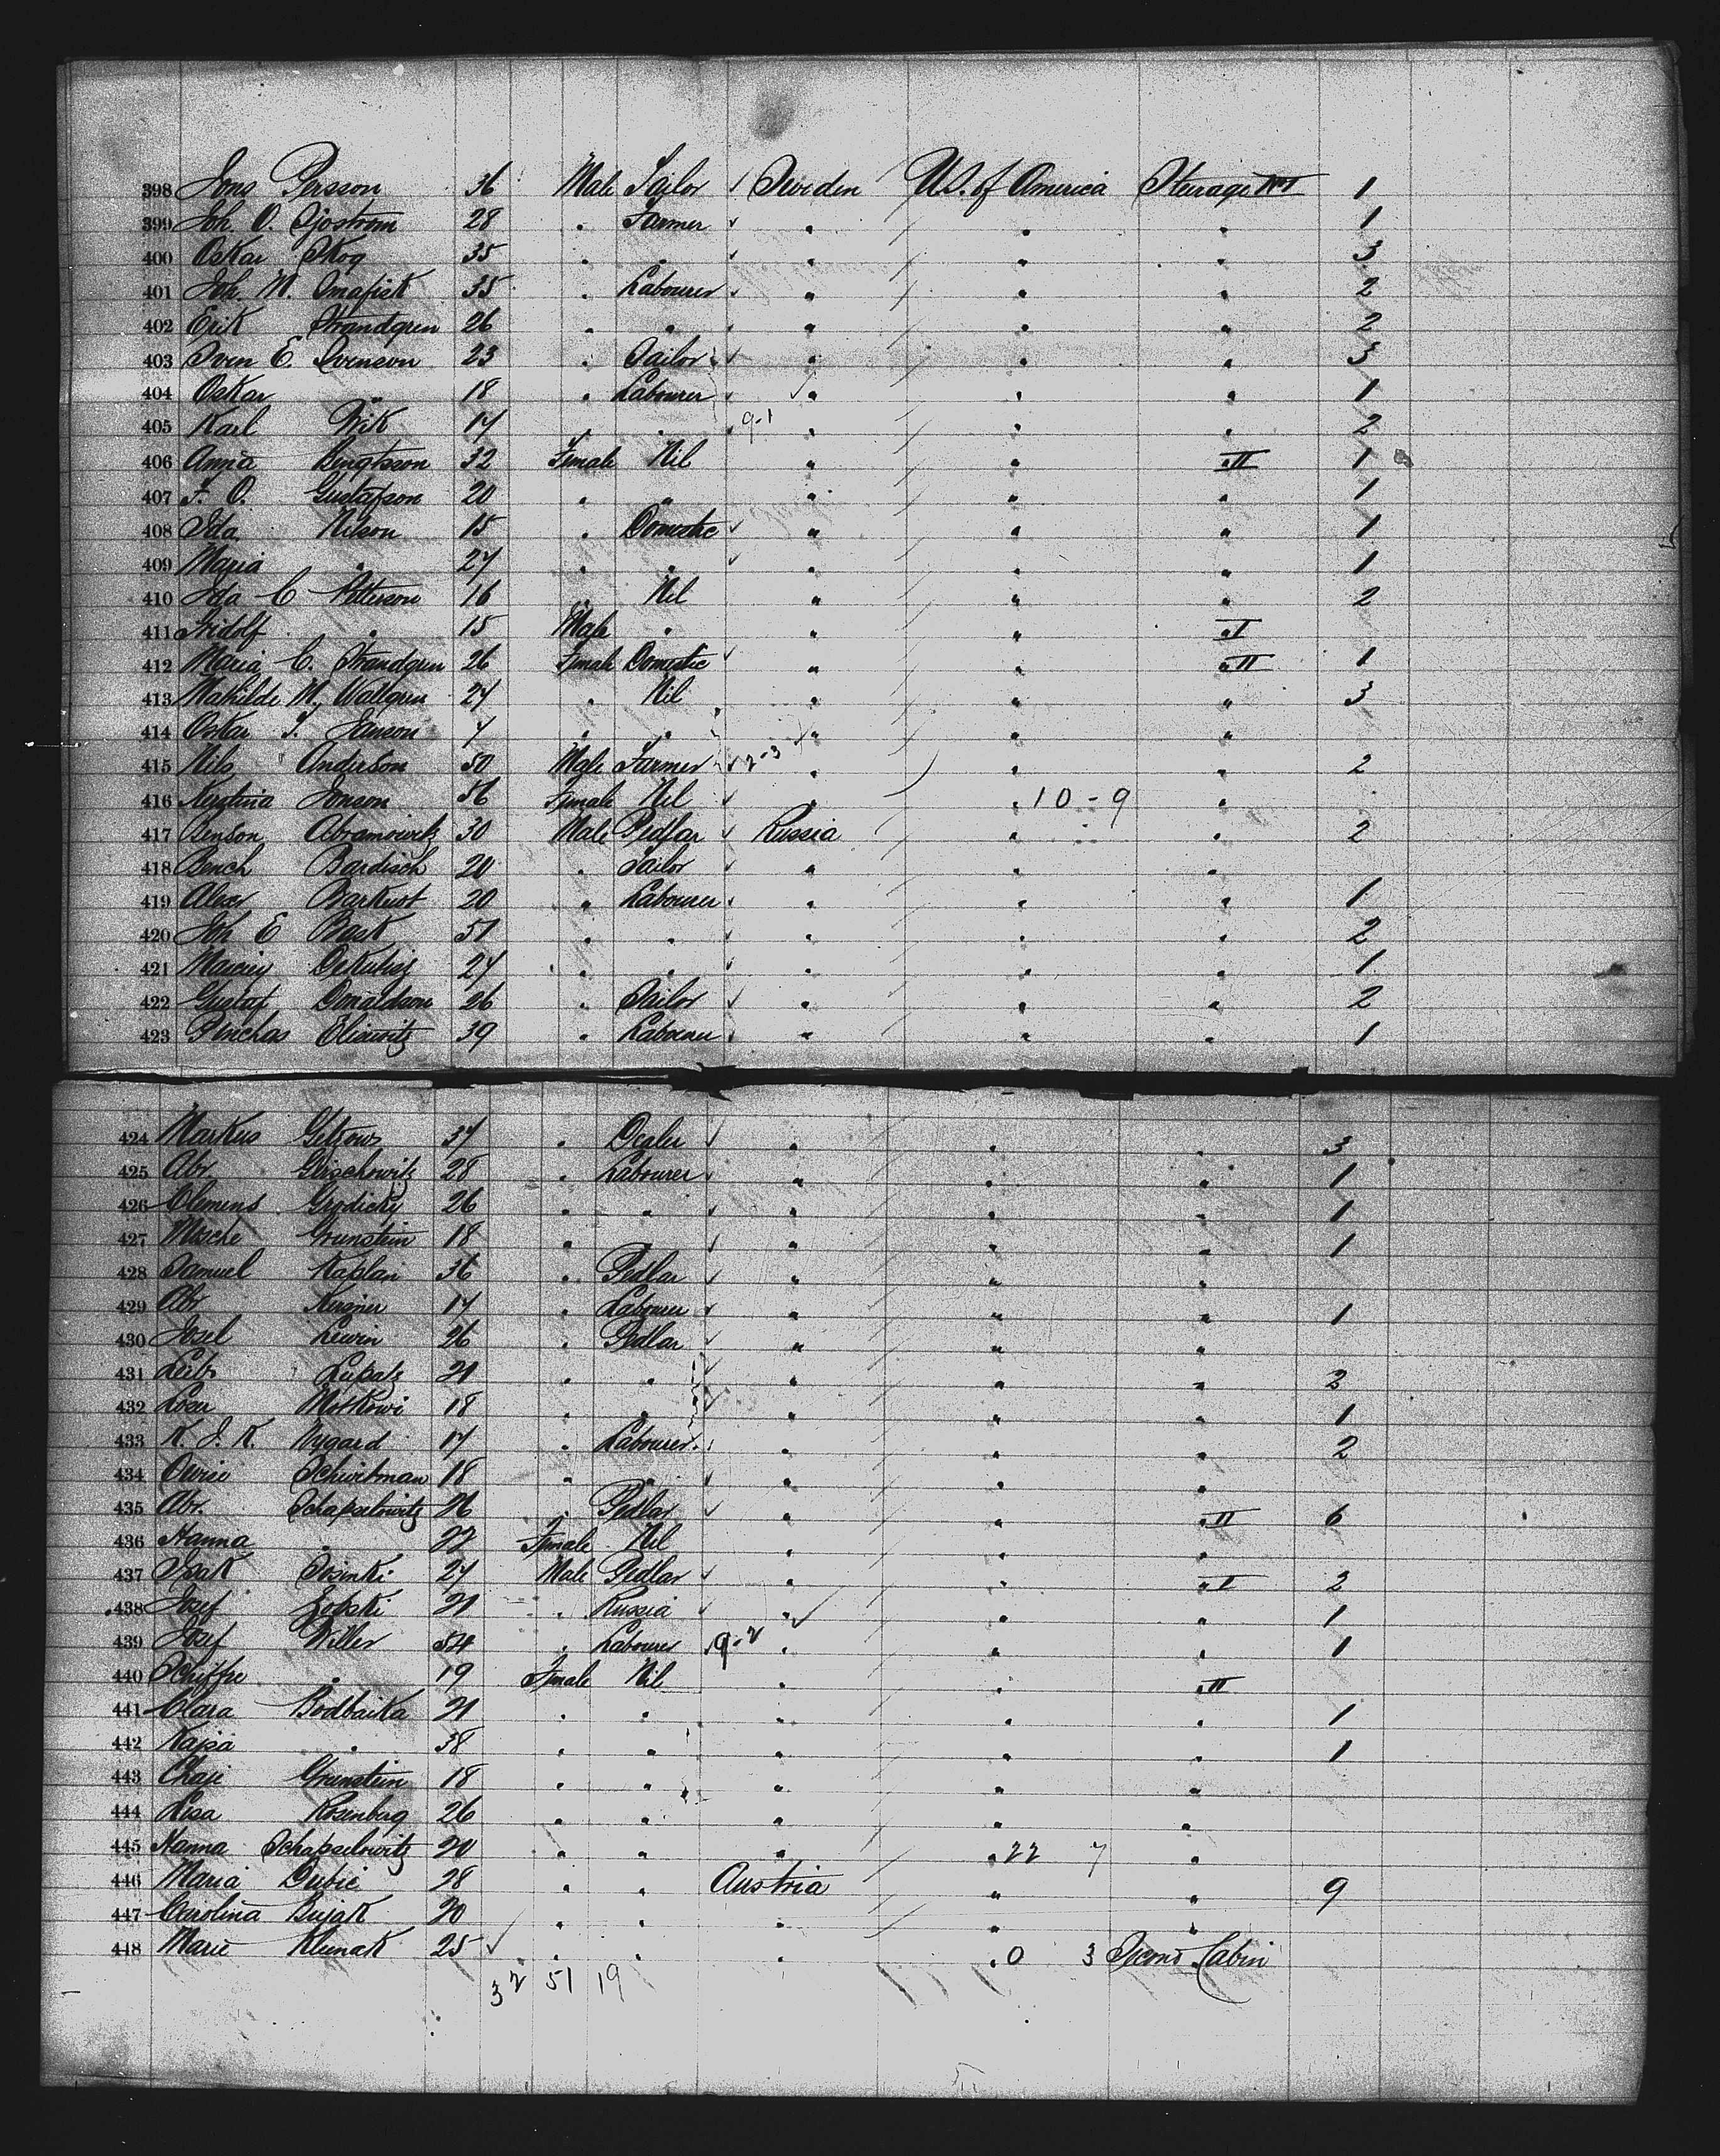 398 Jons Persson 36 Male Tailor Sweden U.S. of America Steerage No I 1
399 Joh. O. Sjostrom 28 " Farmer " " " 1
400 Oskar Skog 35 " " " " " 3
401 Joh. M. 35 " Labourer " " " 2
402 Erik Strandgren 26 " " " " " 2
403 Sven E. Svenson 23 " Sailor " " " 3
404 Oskar " 18 " Labourer " " " 1
405 Karl Wik 17 " " 9-1 " " " 2
406 Anna Bengtsson 32 Female Nil " " " II 1
407 F. O. Gustafson 20 " " " " " 1
408 Ida Nilson 15 " Domestic " " " 1
409 Maria " 27 " " " " " 1
410 Ida C Petterson 16 " Nil " " " 2
411 Fridolf " 15 Male " " " " I
412 Maria C. Strandgren 26 Female Domestic " " " II 1
413 Mathilde M. Wallgren 27 " Nil " " " 3
414 Oskar J. Janson 7 " " " " "
415 Nils Anderson 50 Male Farmer 2-3 " " " 2
416 Kerstina Jonson 56 Female Nil " " 10-9 "
417 Benson Abramowitz 30 Male Pedlar Russia " " 2
418 Bench Bardisch 20 " Tailor " " "
419 Alex Barkust 20 " Labourer " " " 1
420 Joh E Back 57 " " " " " 2
421 24 " " " " " 1
422 Gustaf Donaldson 26 " Sailor " " " 2
423 Pinchas Eliowitz 39 " Labourer " " " 1
424 Markus Getzows 37 " Dealer " " " 3
425 Abr. Gerschowitz 28 " Labourer " " " 1
426 Clemens Grodicky 26 " " " " " 1
427 Mosche Grunstein 18 " " " " " 1
428 Samuel Kaplan 36 " Pedlar " " "
429 Abr Kersner 17 " Labourer " " " 1
430 Josel Lewin 26 " Pedlar " " "
431 Leib 21 " " " " " 2
432 Loser Motkowi 18 " " " " " 1
433 K. J. K. Nygard 17 " Labourer " " " 2
434 18 " " " " "
435 Abr. Schapselowitz 26 " Pedlar " " " II 6
436 Hanna " 22 Female Nil " " "
437 Isak Sosinki 27 Male Pedlar " " " I 2
438 Josef Zolski 21 " Russia " " " 1
439 Josef Willer 54 " Labourer 9-2 " " " 1
440 " 19 Female Nil " " " II
441 Clara Bodbaika 21 " " " " " 1
442 Kajsa " 38 " " " " " 1
443 Chaje Grunstein 18 " " " " "
444 Lisa Rosenberg 26 " " " " "
445 Hanna Schapselowitz 20 " " " " 22 7 "
446 Maria Dubic 28 " " Austria " " 9
447 Carolina Bujak 20 " " " " "
448 Marie Klimak 25 " " " " 0 3 Second Cabin
32 51 19